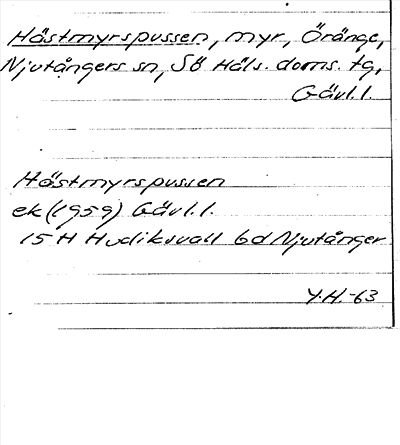 Hästmyrspussen, myr, Öränge,
Njutångers sn, Sö Häls. doms. tg,
Gävl.l.
Hästmyrspussen
ek (1959) Gävl.l.
15 H Hudiksvall 6d Njutånger
Y.H.-63